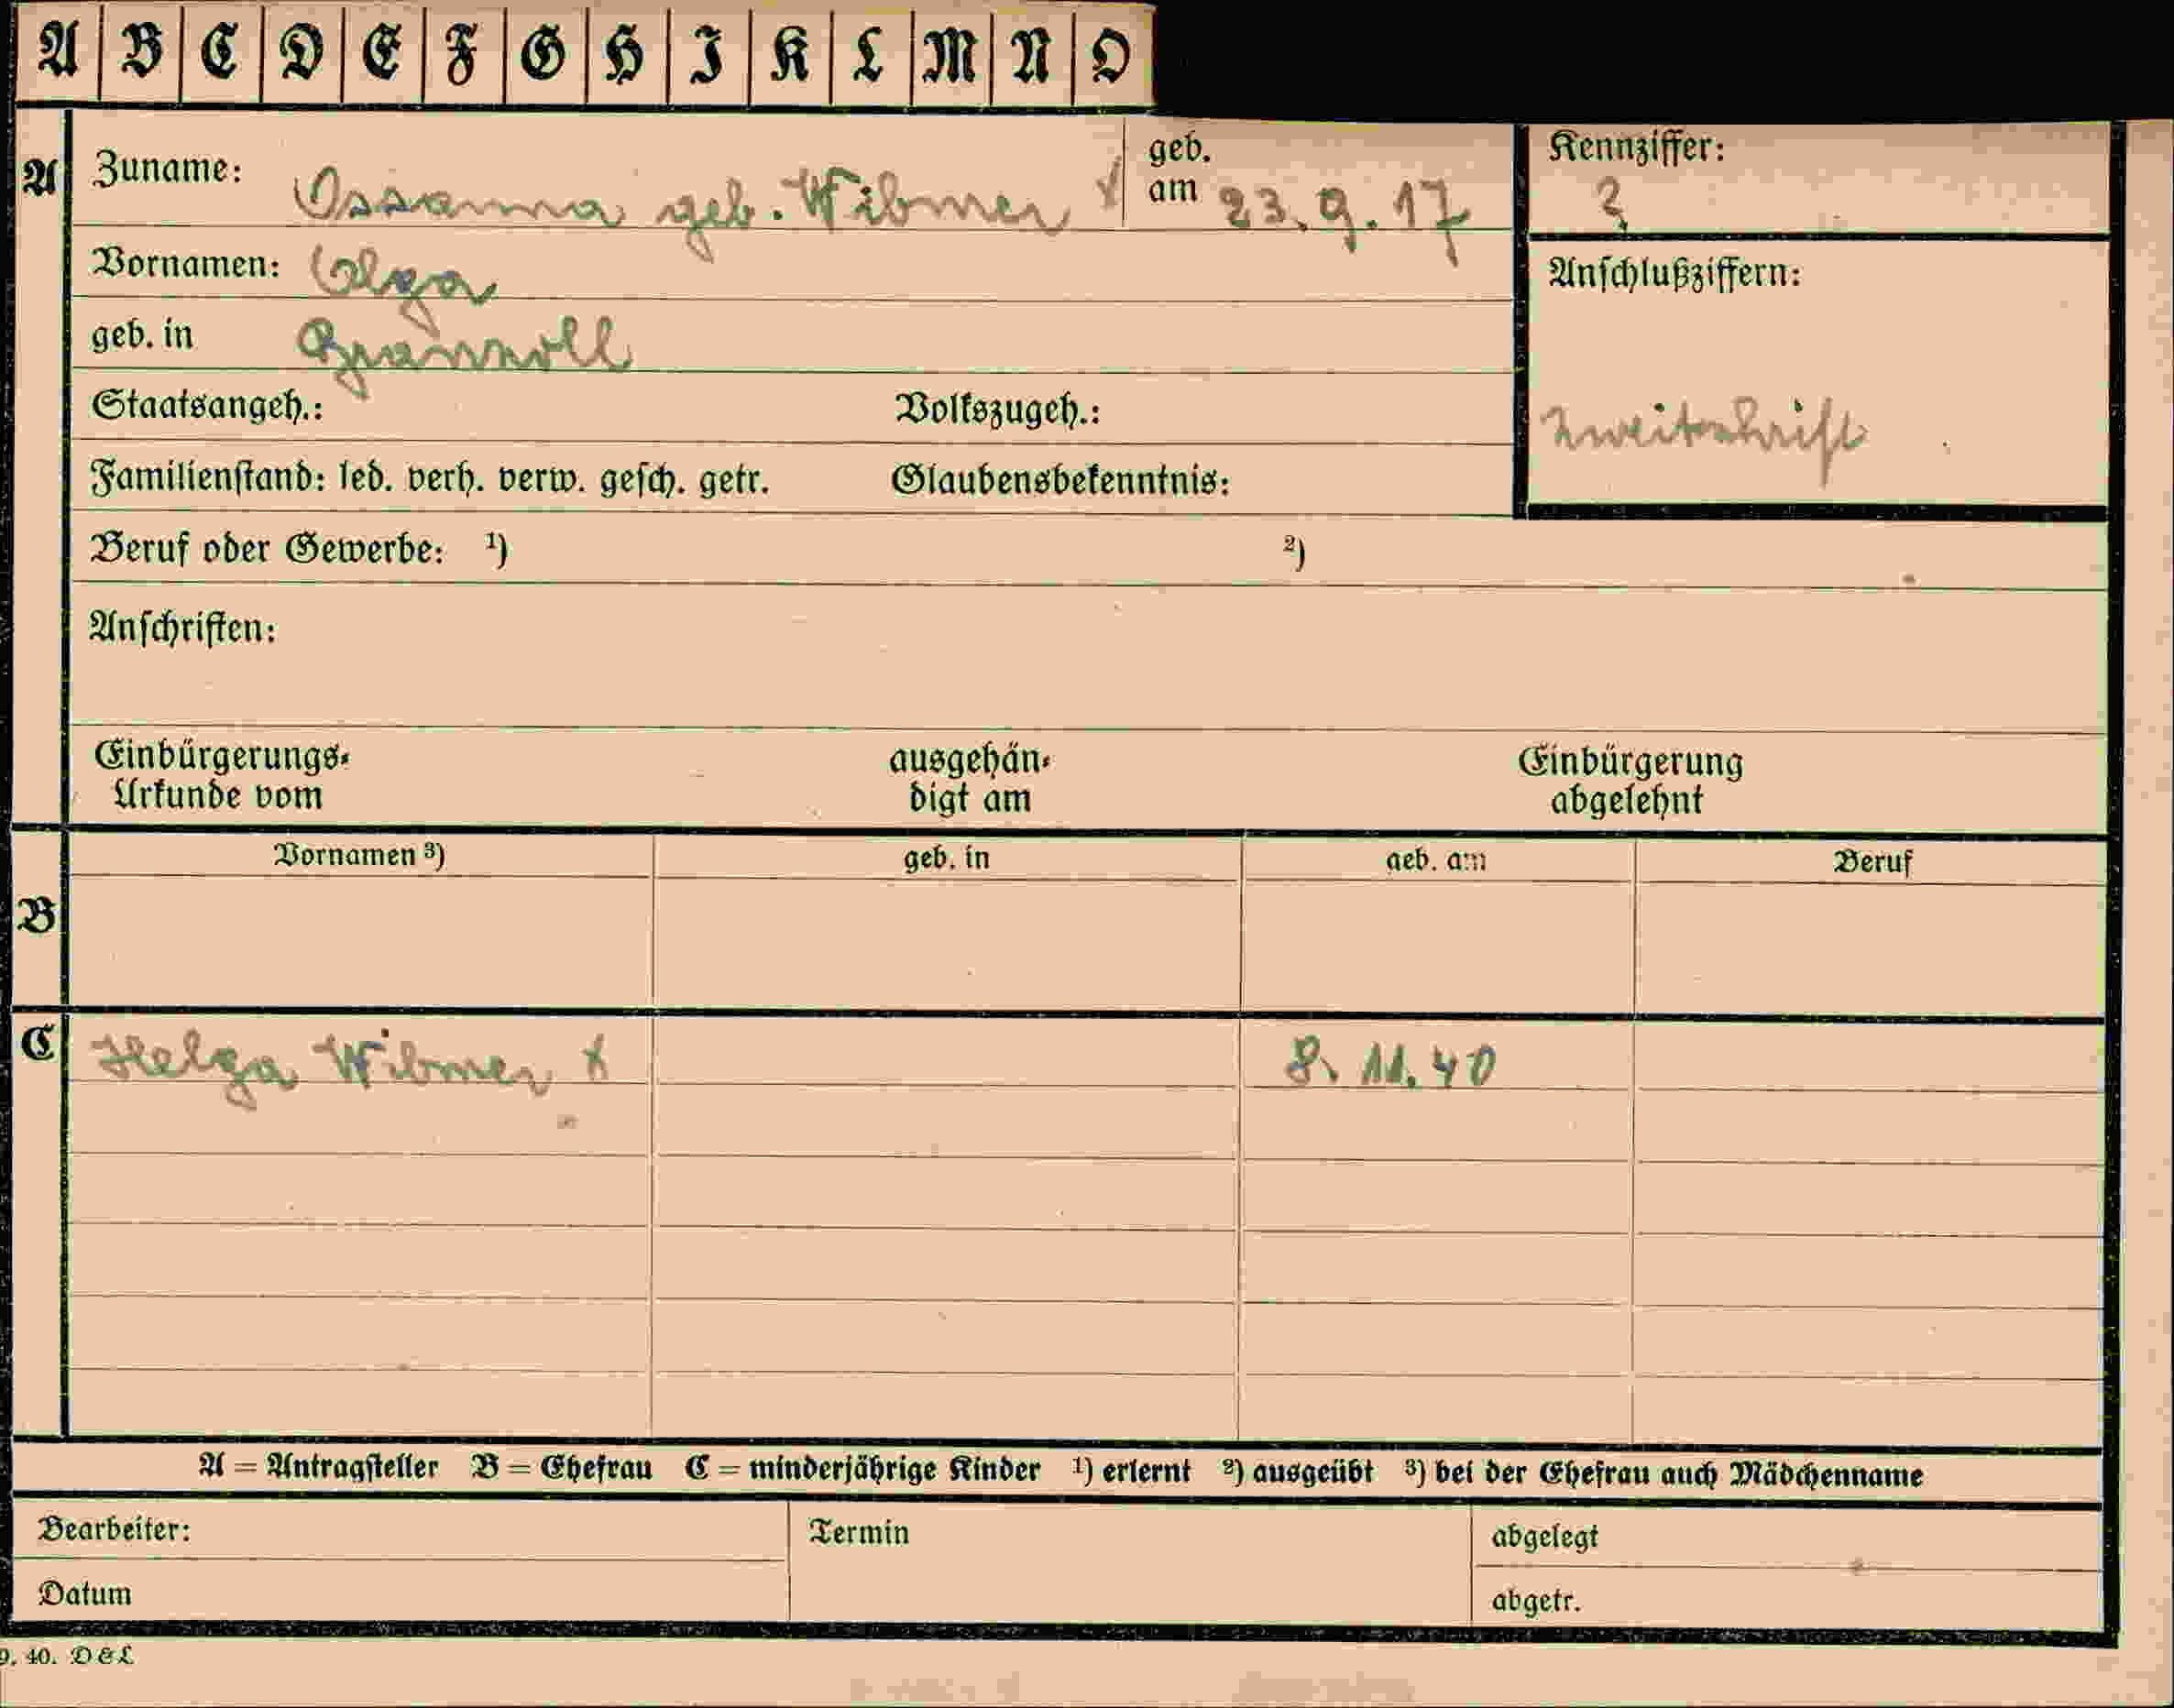 A B C D E F G H I K L M N O
A Zuname: Ossanna geb. Wibmer geb. am 23.9.17 Kennziffer: ?
Vornamen: Olga
Anschlußziffern:
geb. in
Staatsangeh.: Volkszugeh.: Zweitschrift
Familienstand: led. verh. verw. gesch. getr. Glaubensbekenntnis:
Beruf oder Gewerbe: ¹) ²)
Anschriften:
Einbürgerungs- ausgehän- Einbürgerung
Urkunde vom digt am abgelehnt
Vornamen ³) geb. in geb. am Beruf
B
C Helga Wibmer x 8. 11. 40
A = Antragsteller B = Ehefrau C = minderjährige Kinder ¹) erlernt ²) ausgeübt ³) bei der Ehefrau auch Mädchenname
Bearbeiter: Termin abgelegt
Datum abgetr.
9. 40. D & L